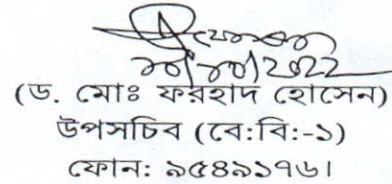 (ড. মোঃ ফরহাদ হোসেন)
উপসচিব (বে:বি:-১)
ফোন: ৯৫৪৯১৭৬।